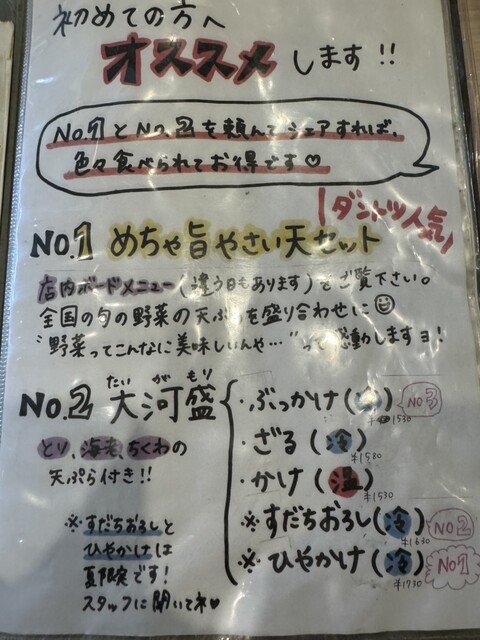 初めての方へ
オススメします!!
No.1とNo.2を頼んでシェアすれば、
色々食べられてお得です♡
ダントツ人気
NO.1 めちゃ旨やさい天セット
店内ボードメニュー(違う日もあります)をご覧下さい。
全国の旬の野菜の天ぷらを盛り合わせに☺
"野菜ってこんなに美味しいんや…"って感動しますヨ!
NO.2 大河盛
たいがもり
とり、海老、ちくわの
天ぷら付き!!
※すだちおろしと
ひやかけは
夏限定です!
スタッフに聞いてネ♥
・ぶっかけ(冷) NO3
¥1530
・ざる(冷)
¥1530
・かけ(温)
¥1530
※すだちおろし(冷) NO2
¥1630
※ひやかけ(冷) NO1
¥1730